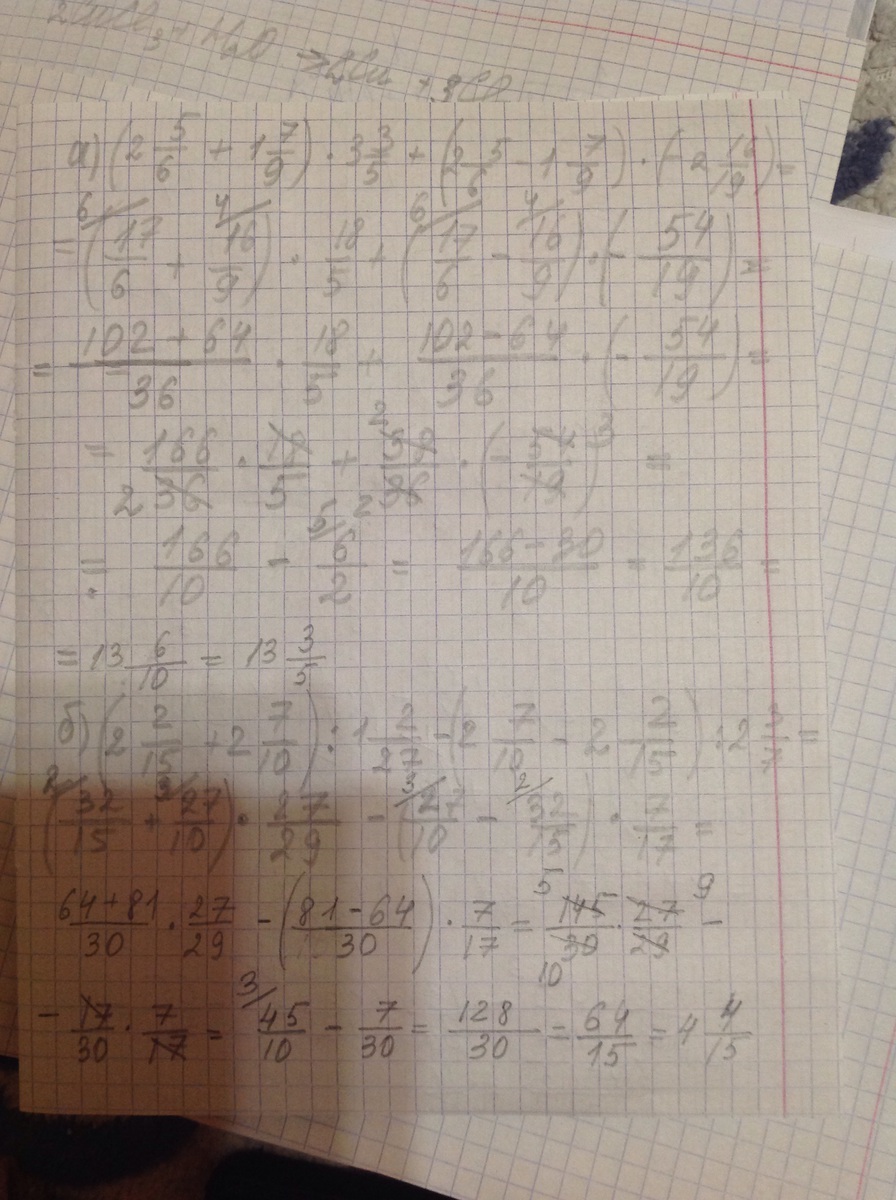 а) (2 5/6 + 1 7/9) · 3 3/5 + (2 5/6 - 1 7/9) · (- 2 16/19) =
= (6/ 17/6 + 4/ 16/9) · 18/5 + (6/ 17/6 - 4/ 16/9) · (- 54/19) =
= (102 + 64)/36 · 18/5 + (102 - 64)/36 · (- 54/19) =
= 166/36 2 · 18/5 + 2 38/36 2 · (- 54/19) 3 =
= 166/10 - 5/ 6/2 = (166 - 30)/10 = 136/10 =
= 13 6/10 = 13 3/5
б) (2 2/15 + 2 7/10) : 1 2/27 - (2 7/10 - 2 2/15) : 2 3/7 =
(2/ 32/15 + 3/ 27/10) · 27/29 - (3/ 27/10 - 2/ 32/15) · 7/17 =
(64 + 81)/30 · 27/29 - ((81 - 64)/30) · 7/17 = 5 145/30 10 · 27/29 9 -
- 17/30 · 7/17 = 3/ 45/10 - 7/30 = 128/30 = 64/15 = 4 4/15